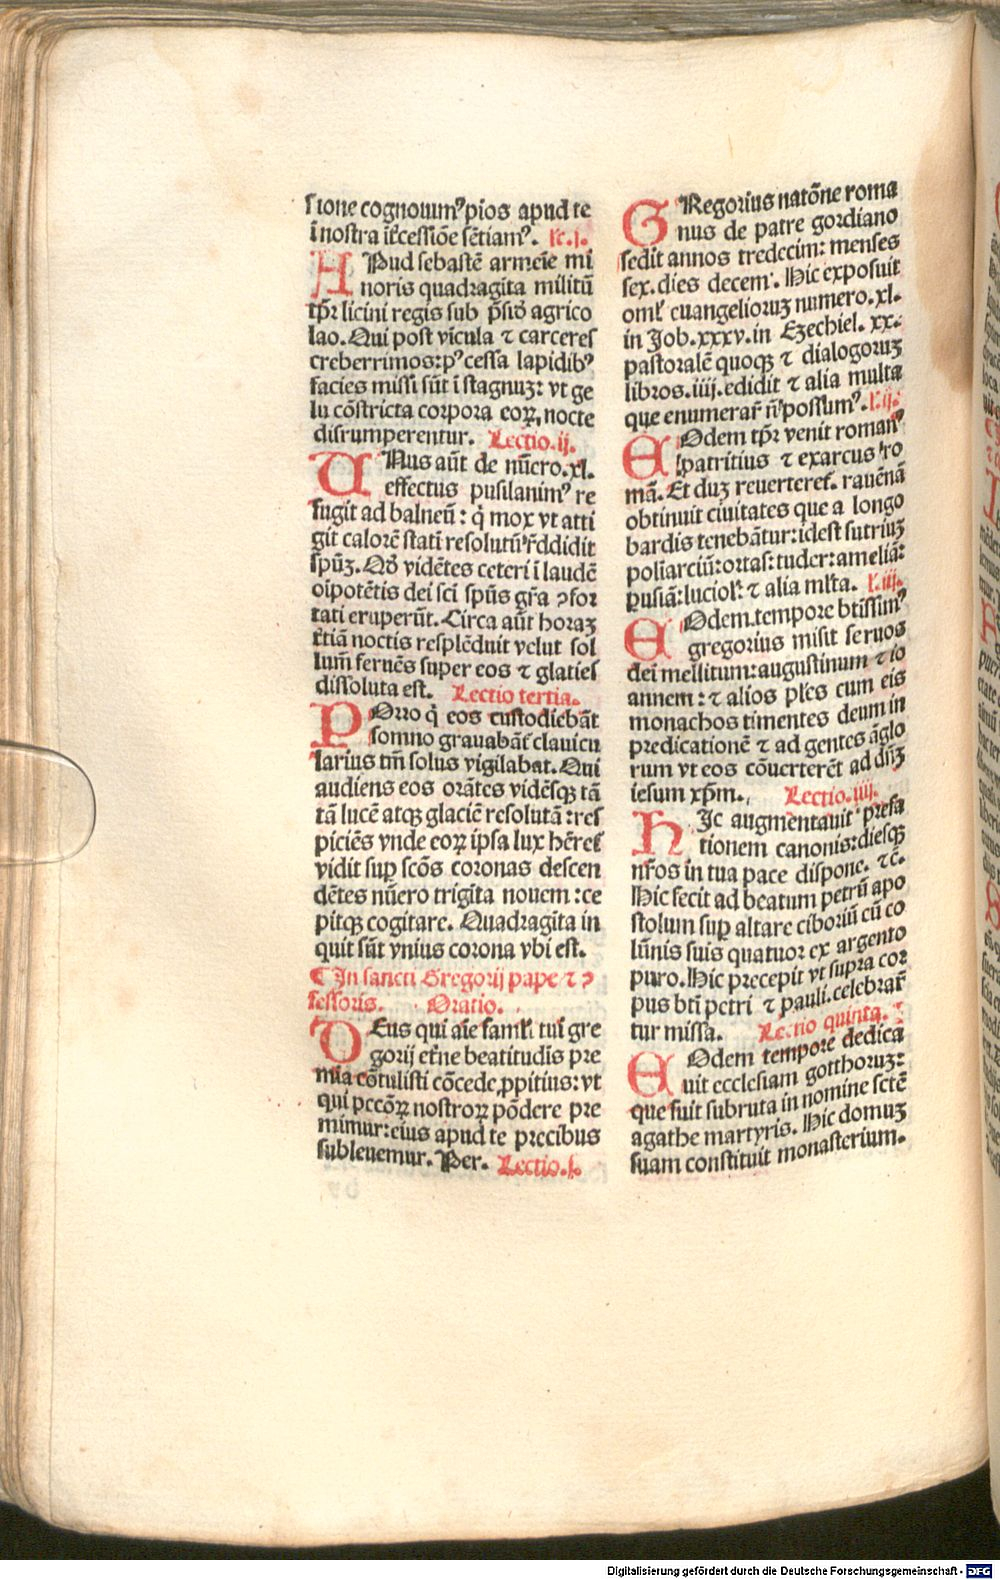 sione cognouimꝰ pios apud te
ī nostra īt̄cessiōe sētiamꝰ. lc̄.j.
APud sebastē armeīe mi
noris quadragīta militū
tp̄r licini regis sub p̄sid̄ agrico
lao. Qui post vīcula ⁊ carceres
creberrimos: pꝰ cessa lapidibꝰ
facies missi sūt ī stagnuꝫ: vt ge
lu cōstricta corpora eoꝝ, nocte
disrumperentur. Lectio.ij.
VNus aūt de nūero.xl.
effectus pusilanimꝰ re
fugit ad balneū: q̇ mox vt atti
git calorē statī resolutū r̄ddidit
sp̄ūꝫ. Qd̄ vidētes ceteri ī laudē
oīpotētis dei sc̄i sp̄ūs gr̄a ↄ̄for
tati eruperūt. Circa aūt horaꝫ
t̄tiā noctis resplēduit velut sol
lum̄ feruēs super eos ⁊ glaties
dissoluta est. Lectio tertia.
POrro q̇ eos custodiebāt
somno grauabāt̄ clauicu
larius tm̄ solus vigilabat. Qui
audiens eos orātes vidēsqꝫ tā
tā lucē atqꝫ glaciē resolutā: res
piciēs vnde eoꝝ ipsa lux hēret̄
vidit suꝑ scōs coronas descen
dētes nūero trigīta nouem: ce
pitqꝫ cogitare. Quadragīta in
quit sāt vnius corona vbi est.
¶ In sancti Gregorij pape ⁊ ↄ̄
fessoris. Oratio.
DEus qui aīe famk̄i tui gre
gorij et̄ne beatitudīs pre
mia cōtulisti cōcede ꝓpitius: vt
qui pccōꝝ nostroꝝ pōdere pre
mimur: eius apud te precibus
subleuemur. Per. Lectio.j.
GRegorius natōne roma
nus de patre gordiano
sedit annos tredecim: menses
sex. dies decem. Hic exposuit
oml̄ euangelioruꝫ numero.xl.
in Job.xxxv. in Ezechiel. xx.
pastoralē quoqꝫ ⁊ dialogoruꝫ
libros.iiij. edidit ⁊ alia multa
que enumerar̄ n̄ possumꝰ. l.ij.
EOdem tp̄r venit romanꝰ
patritius ⁊ exarcus ro
mā. Et duꝫ reuerteret̄. rauēnā
obtinuit ciuitates que a longo
bardis tenebātur: idest sutriuꝫ
polīarciū: ortas: tuder: ameliā:
ꝑusiā: luciol̄: ⁊ alia ml̄ta. l.iij.
EOdem tempore btīssimꝰ
gregorius misit seruos
dei mellitum: augustinum ⁊ io
annem: ⁊ alios pl̄es cum eis
monachos timentes deum in
predicationē ⁊ ad gentes āglo
rum vt eos cōuerterēt ad dn̄ꝫ
iesum xp̄m. Lectio.iiij.
HIc augmentauit prefa
tionem canonis: diesqꝫ
nr̄os in tua pace dispone. ⁊c̄.
Hic fecit ad beatum petrū apo
stolum suꝑ altare ciboriū cū co
lūnis suis quatuor ex argento
puro. Hic precepit vt supra cor
pus btī petri ⁊ pauli. celebrar̄
tur missa. Lectio quinta.
EOdem tempore dedica
uit ecclesiam gotthoruꝫ:
que fuit subruta in nomine sctē
agathe martyris. Hic domuꝫ
suam constituit monasterium.
Digitalisierung gefördert durch die Deutsche Forschungsgemeinschaft - DFG